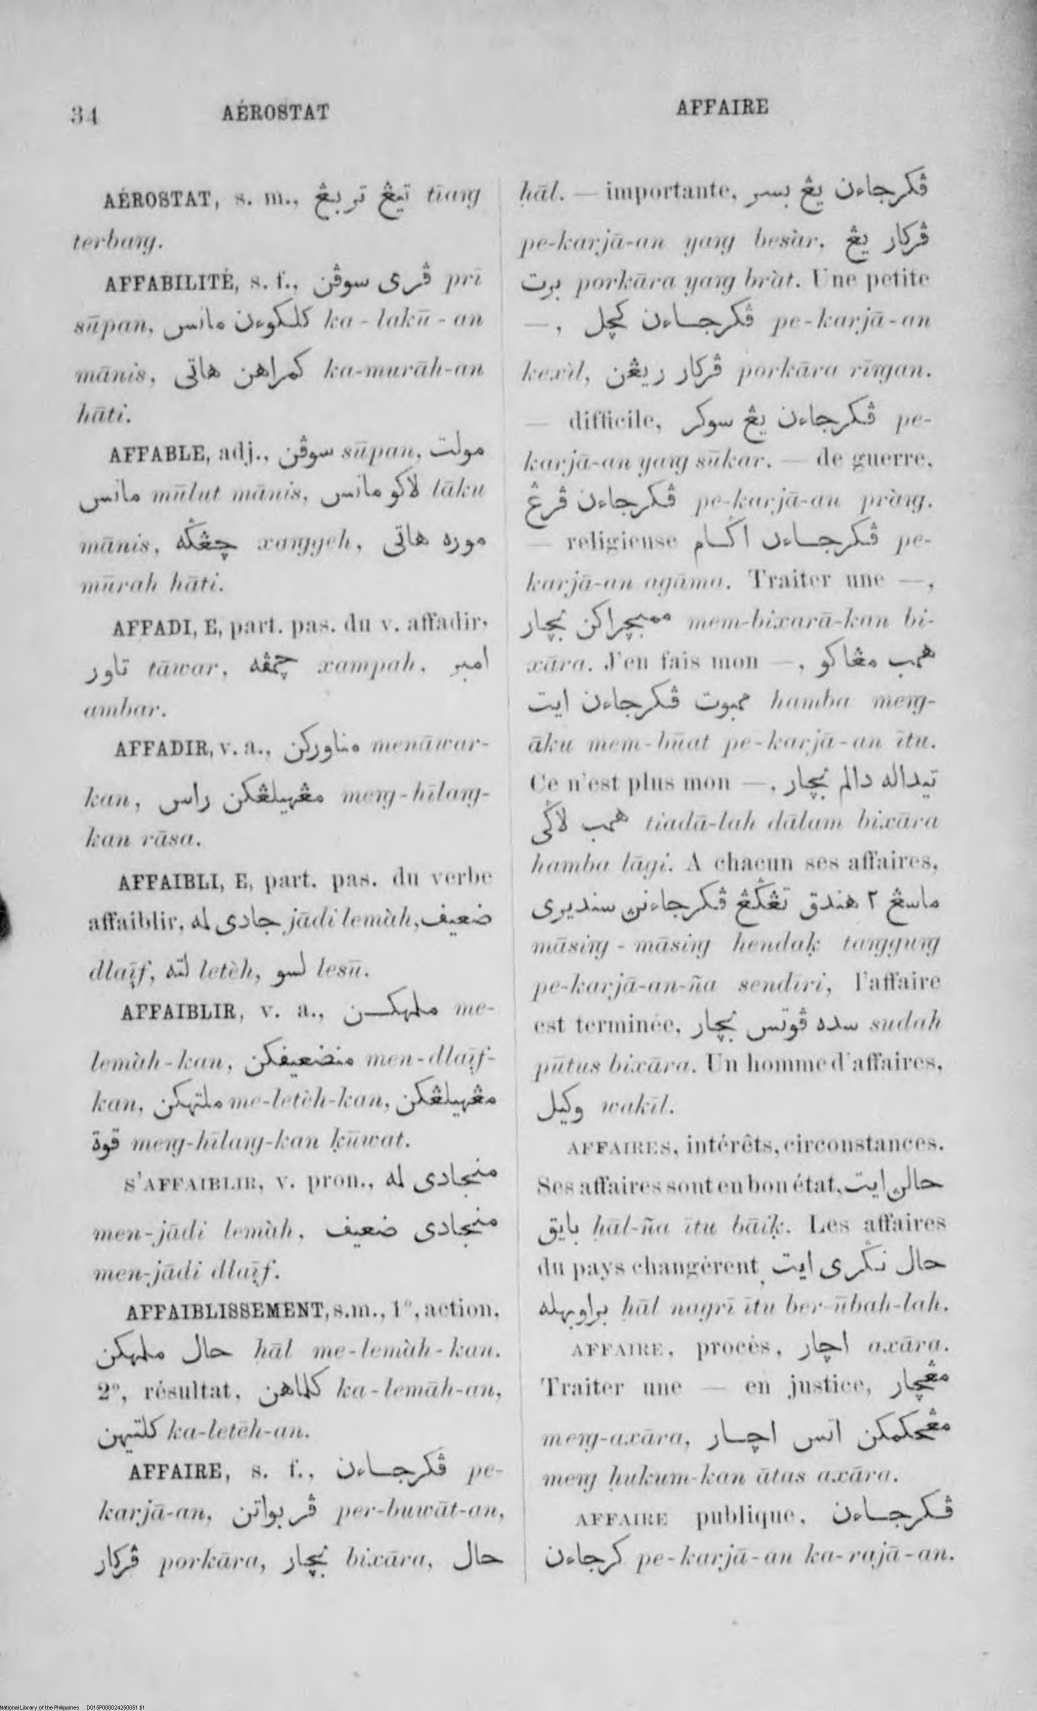 34
AÉROSTAT
AFFAIRE
AÉROSTAT, s. m., تيڠ تربڠ tīang
terbang.
AFFABILITÉ, s. f., ڤرى سوڤن prī
sūpan, كلكوءن مانس ka-lakū-an
mānis, كمراهن هاتى ka-murāh-an
hāti.
AFFABLE, adj., سوڤن sūpan, مولت
مانس mūlut mānis, لاكو مانس lāku
mānis, چڠݢه xanggeh, موره هاتى
mūrah hāti.
AFFADI, E, part. pas. du v. affadir,
تاور tāwar, چمڤه xampah, امبر
ambar.
AFFADIR, v. a., مناوركن menāwar-
kan, مڠهيلڠكن راس meng-hīlang-
kan rāsa.
AFFAIBLI, E, part. pas. du verbe
affaiblir, جادى له jādi lemàh, ضعيف
dlaīf, لته letèh, لسو lesū.
AFFAIBLIR, v. a., ملهكن me-
lemàh-kan, منضعيفكن men-dlaīf-
kan, ملتهكن me-letèh-kan, مڠهيلڠكن
قوة meng-hīlang-kan ḳūwat.
S'AFFAIBLIR, v. pron., منجادى له
men-jādi lemàh, منجادى ضعيف
men-jādi dlaīf.
AFFAIBLISSEMENT, s.m., 1°, action,
حال ملهكن hāl me-lemàh-kan.
2°, résultat, كلماهن ka-lemāh-an,
كلتيهن ka-letēh-an.
AFFAIRE, s. f., ڤكرجاءن pe-
karjā-an, ڤربواتن per-buwāt-an,
ڤركار porkāra, بچار bixāra, حال
ḥāl. — importante, ڤكرجاءن يڠ بسر
pe-karjā-an yang besàr, ڤركار يڠ
برت porkāra yang bràt. Une petite
—, ڤكرجاءن كچل pe-karjā-an
kexìl, ڤركار ريڠن porkāra rīngan.
— difficile, ڤكرجاءن يڠ سوكر pe-
karjā-an yang sūkar. — de guerre,
ڤكرجاءن ڤرڠ pe-karjā-an pràng.
— religieuse ڤكرجاءن اݢام pe-
karjā-an agāma. Traiter une —,
ممبچراكن بچار mem-bixarā-kan bi-
xāra. J'en fais mon —, همب مڠاكو
ممبوت ڤكرجاءن ايت hamba meng-
āku mem-būat pe-karjā-an ītu.
Ce n'est plus mon —, تيداله دالم بچار
همب لاݢى tiadā-lah dālam bixāra
hamba lāgi. A chacun ses affaires,
ماسڠ ٢ هندق تڠݢڠ ڤكرجاءنڽ سنديرى
māsing-māsing hendaḳ tanggung
pe-karjā-an-ña sendīri, l'affaire
est terminée, سده ڤوتس بچار sudah
pūtus bixāra. Un homme d'affaires,
وكيل wakīl.
AFFAIRES, intérêts, circonstances.
Ses affaires sont en bon état, حالڽ ايت
بايق hāl-ña ītu bāiḳ. Les affaires
du pays changérent, حال نݢرى ايت
براوبهله hāl nagrī ītu ber-ūbah-lah.
AFFAIRE, procès, اچار axāra.
Traiter une — en justice, مڠچار
meng-axāra, مڠحكمكن اتس اچار
meng ḥukum-kan ātas axāra.
AFFAIRE publique, ڤكرجاءن
كرجاءن pe-karjā-an ka-rajā-an.
National Library of the Philippines